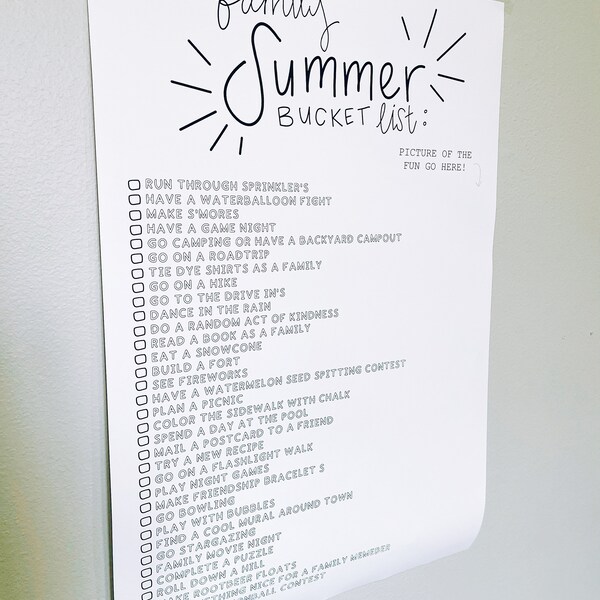 Family
Summer
BUCKET list:
PICTURE OF THE
FUN GO HERE!
RUN THROUGH SPRINKLER'S
HAVE A WATERBALLOON FIGHT
MAKE S'MORES
HAVE A GAME NIGHT
GO CAMPING OR HAVE A BACKYARD CAMPOUT
GO ON A ROADTRIP
TIE DYE SHIRTS AS A FAMILY
GO ON A HIKE
GO TO THE DRIVE IN'S
DANCE IN THE RAIN
DO A RANDOM ACT OF KINDNESS
READ A BOOK AS A FAMILY
EAT A SNOWCONE
BUILD A FORT
SEE FIREWORKS
HAVE A WATERMELON SEED SPITTING CONTEST
PLAN A PICNIC
COLOR THE SIDEWALK WITH CHALK
SPEND A DAY AT THE POOL
MAIL A POSTCARD TO A FRIEND
TRY A NEW RECIPE
GO ON A FLASHLIGHT WALK
PLAY NIGHT GAMES
MAKE FRIENDSHIP BRACELET S
GO BOWLING
PLAY WITH BUBBLES
FIND A COOL MURAL AROUND TOWN
GO STARGAZING
FAMILY MOVIE NIGHT
COMPLETE A PUZZLE
ROLL DOWN A HILL
MAKE ROOTBEER FLOATS
NICE FOR A FAMILY MEMEBER
CONTEST